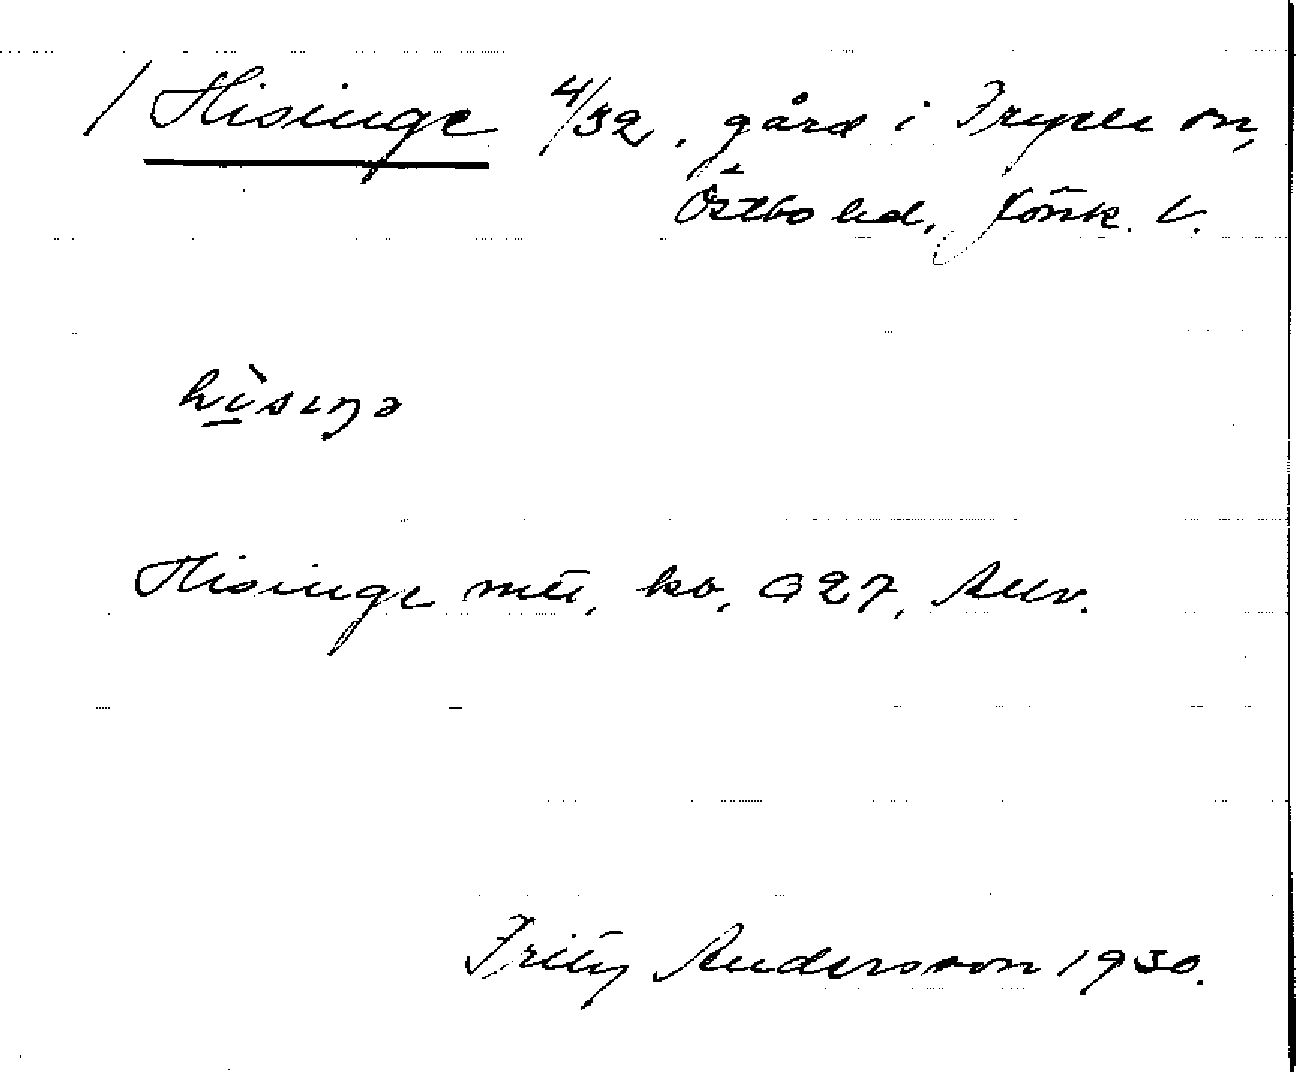 / Hisinge 4/32, gård i Fryele sn,
Östbo hd, Jönk. l.
hìsıŋə
Hisinge mtl, ko, 927, Allv.
Frity Andersson 1930.